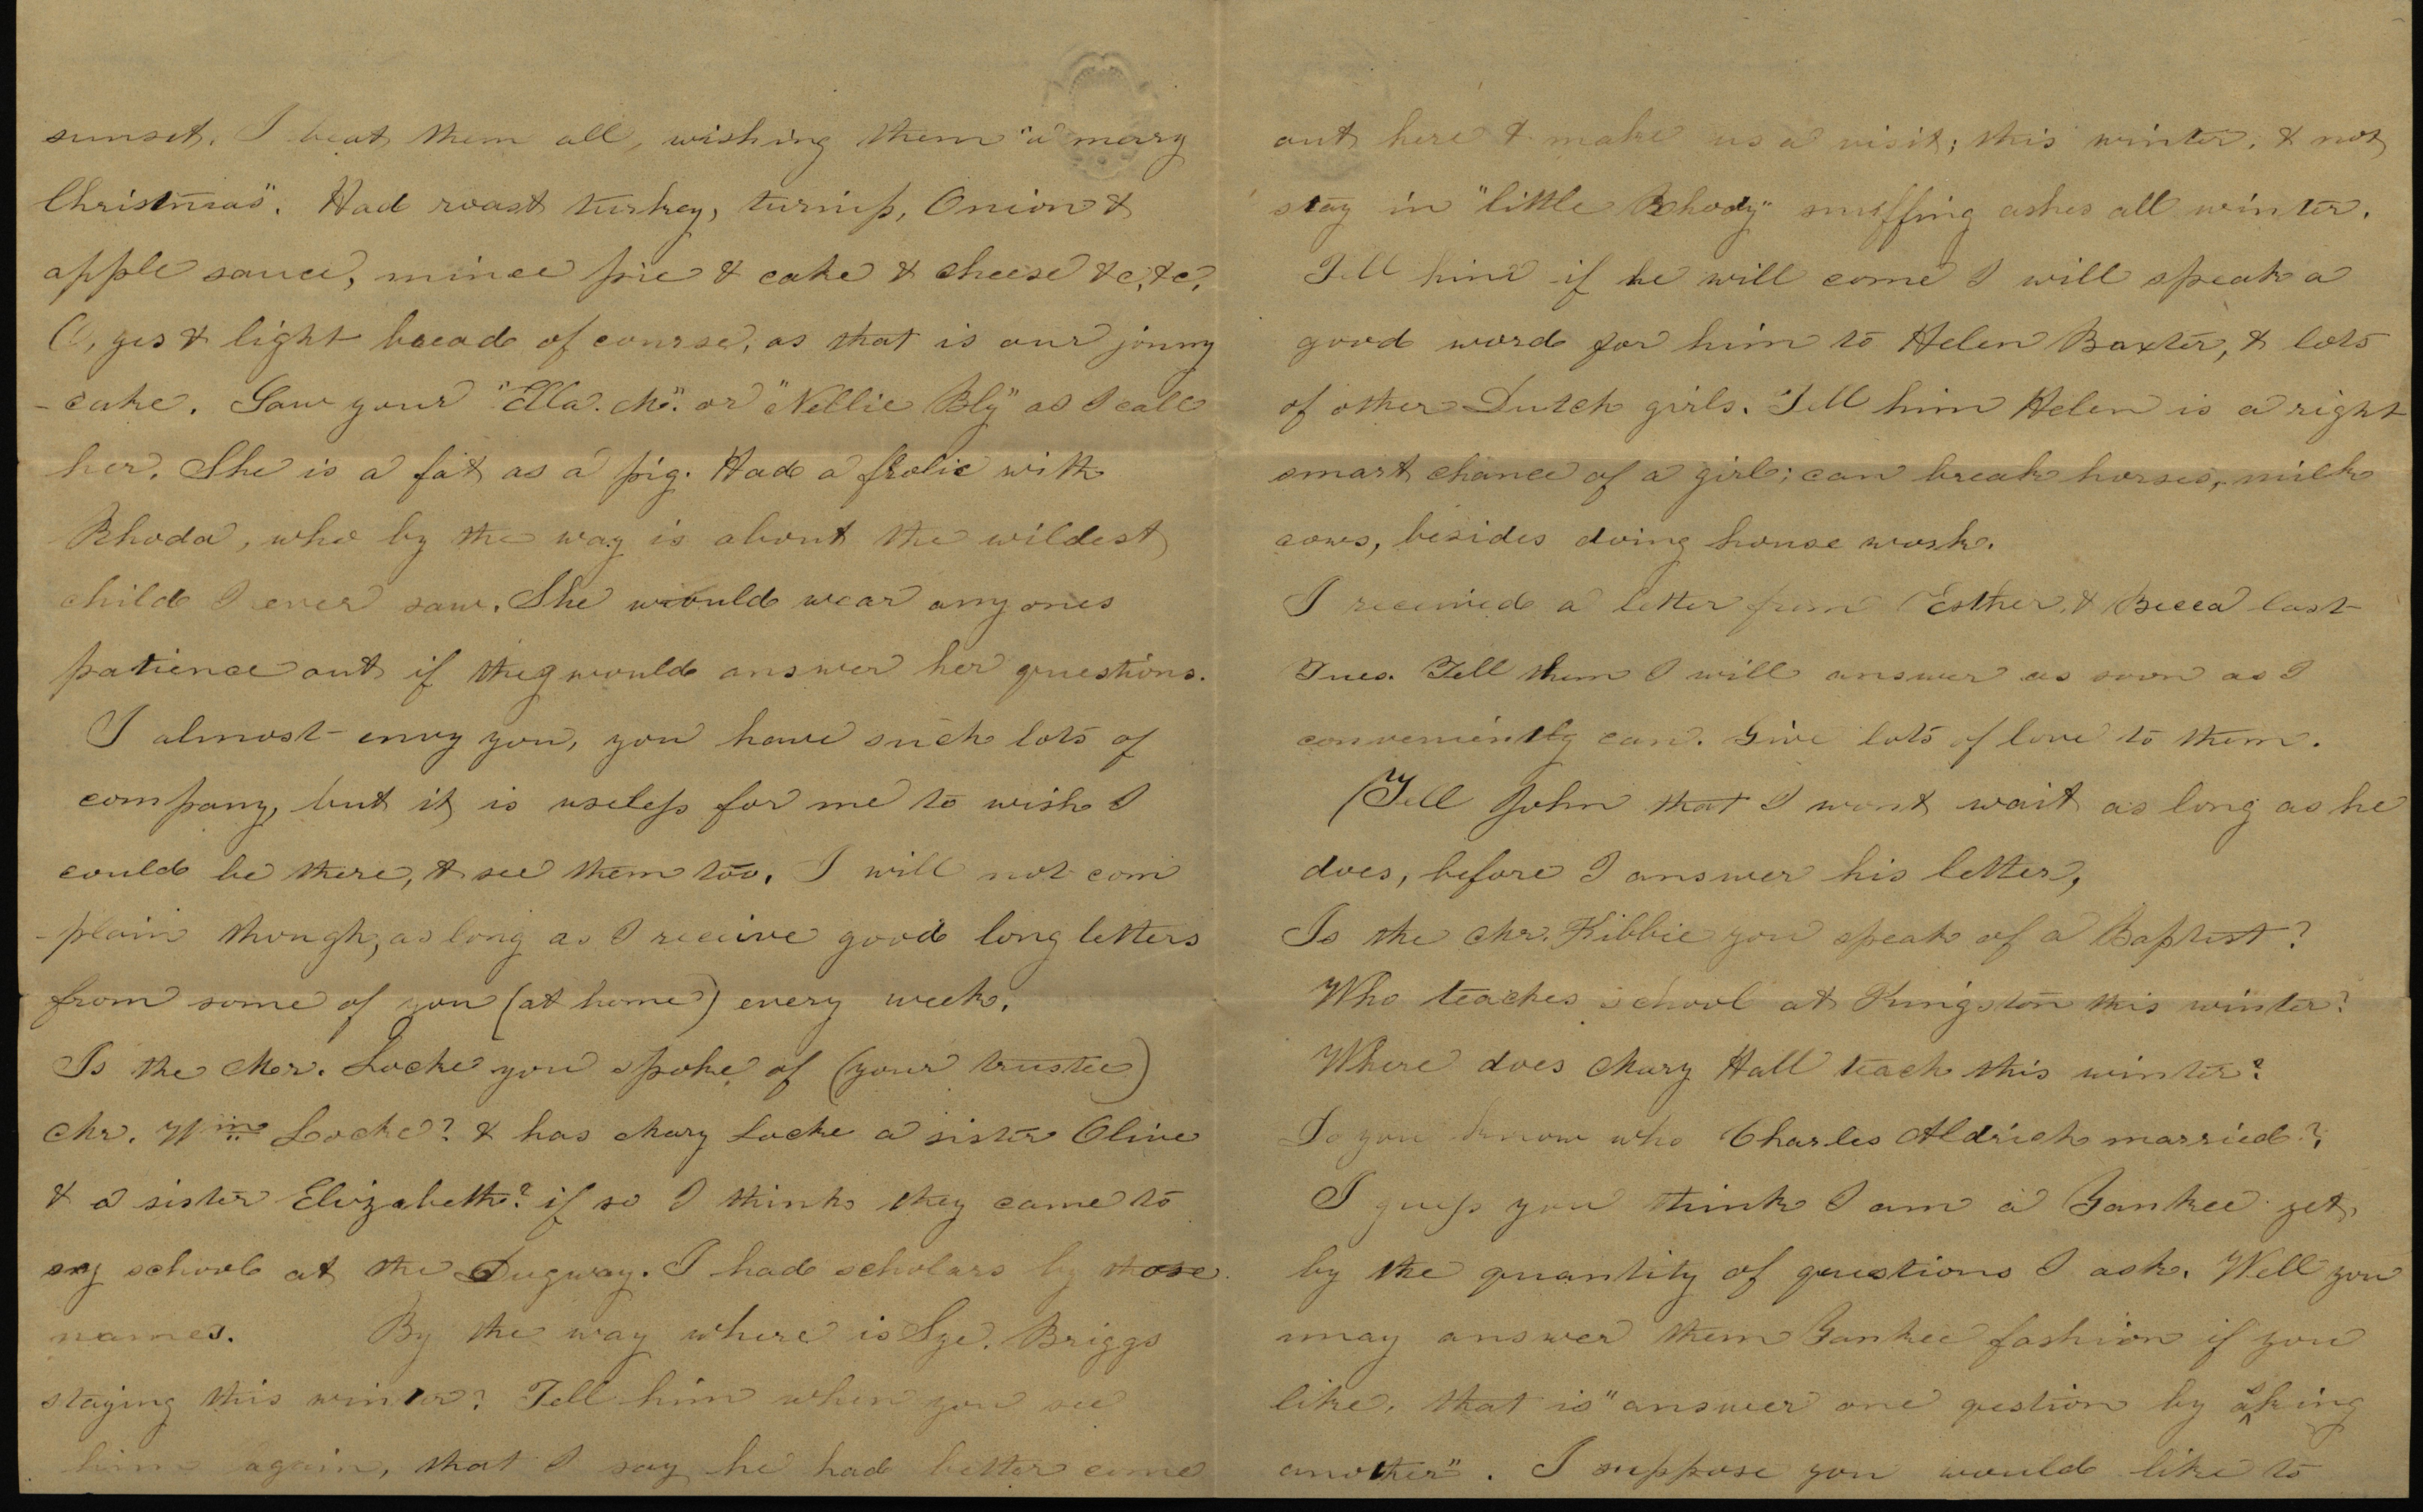 sunset. I beat them all, wishing them "a merry
Christmas". Had roast turkey, turnip, Onion &
apple sauce, mince pie & cake & cheese &c, &c,
O, yes & light bread of course, as that is our jonny
-cake. Saw your "Ella. M." or "Nellie Bly" as I call
her. She is a fat as a pig. Had a frolic with
Rhoda, who by the way is about the wildest
child I ever saw. She would wear any ones
patience out if they would answer her questions.
I almost envy you, you have such lots of
company, but it is useless for me to wish I
could be there, & see them too. I will not com
-plain though, as long as I receive good long letters
from some of you (at home) every week.
Is the Mr. Locke you spoke of (your trustee)
Mr. Wm Locke? & has Mary Locke a sister Olive
& a sister Elizabeth? if so I think they came to
my school at the Dugway. I had scholars by those
names. By the way where is Sye. Briggs
staying this winter? Tell him when you see
him again, that I say he had better come
out here & make us a visit; this winter, & not
stay in "little Rhody" sniffing ashes all winter.
Tell him if he will come I will speak a
good word for him to Helen Baxter, & lots
of other Dutch girls. Tell him Helen is a right
smart chance of a girl; can break horses, milk
cows, besides doing house work.
I received a letter from Esther, & Becca last
Tues. Tell them I will answer as soon as I
conveniently can. Give lots of love to them.
(Tell John that I wont wait as long as he
does, before I answer his letter,
Is the Mr. Kibbie you speak of a Baptist?
Who teaches school at Kingston this winter?
Where does Mary Hall teach this winter?
Do you know who Charles Aldrich married?
I guess you think I am a Yankee yet,
by the quantity of questions I ask. Well you
may answer them Yankee fashion if you
like, that is "answer one qestion by asking
another". I suppose you would like to